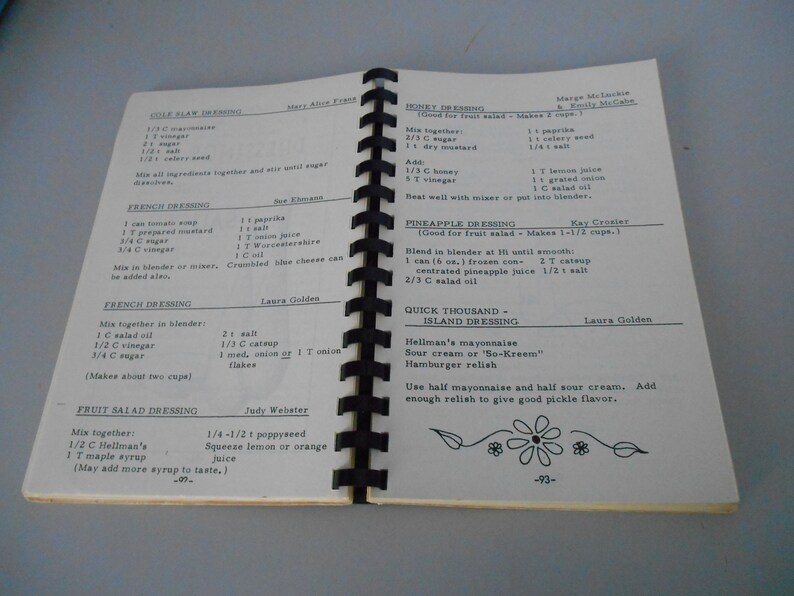 COLE SLAW DRESSING Mary Alice Frans
1/3 C mayonnaise
1 T vinegar
2 t sugar
1/2 t salt
1/2 t celery seed
Mix all ingredients together and stir until sugar
dissolves.
FRENCH DRESSING Sue Ehmann
1 can tomato soup 1 t paprika
1 T prepared mustard 1 t salt
3/4 C sugar 1 T onion juice
3/4 C vinegar 1 T Worcestershire
1 C oil
Mix in blender or mixer. Crumbled blue cheese can
be added also.
FRENCH DRESSING Laura Golden
Mix together in blender:
1 C salad oil 2 t salt
1/2 C vinegar 1/3 C catsup
3/4 C sugar 1 med. onion or 1 T onion
flakes
(Makes about two cups)
FRUIT SALAD DRESSING Judy Webster
Mix together: 1/4 -1/2 t poppyseed
1/2 C Hellman's Squeeze lemon or orange
1 T maple syrup juice
(May add more syrup to taste.)
Marge McLuckie
HONEY DRESSING & Emily McCabe
(Good for fruit salad - Makes 2 cups.)
Mix together: 1 t paprika
2/3 C sugar 1 t celery seed
1 t dry mustard 1/4 t salt
Add:
1/3 C honey 1 T lemon juice
5 T vinegar 1 t grated onion
1 C salad oil
Beat well with mixer or put into blender.
PINEAPPLE DRESSING Kay Crozier
(Good for fruit salad - Makes 1-1/2 cups.)
Blend in blender at Hi until smooth:
1 can (6 oz.) frozen con- 2 T catsup
centrated pineapple juice 1/2 t salt
2/3 C salad oil
QUICK THOUSAND -
ISLAND DRESSING Laura Golden
Hellman's mayonnaise
Sour cream or 'So-Kreem"
Hamburger relish
Use half mayonnaise and half sour cream. Add
enough relish to give good pickle flavor.
-93-